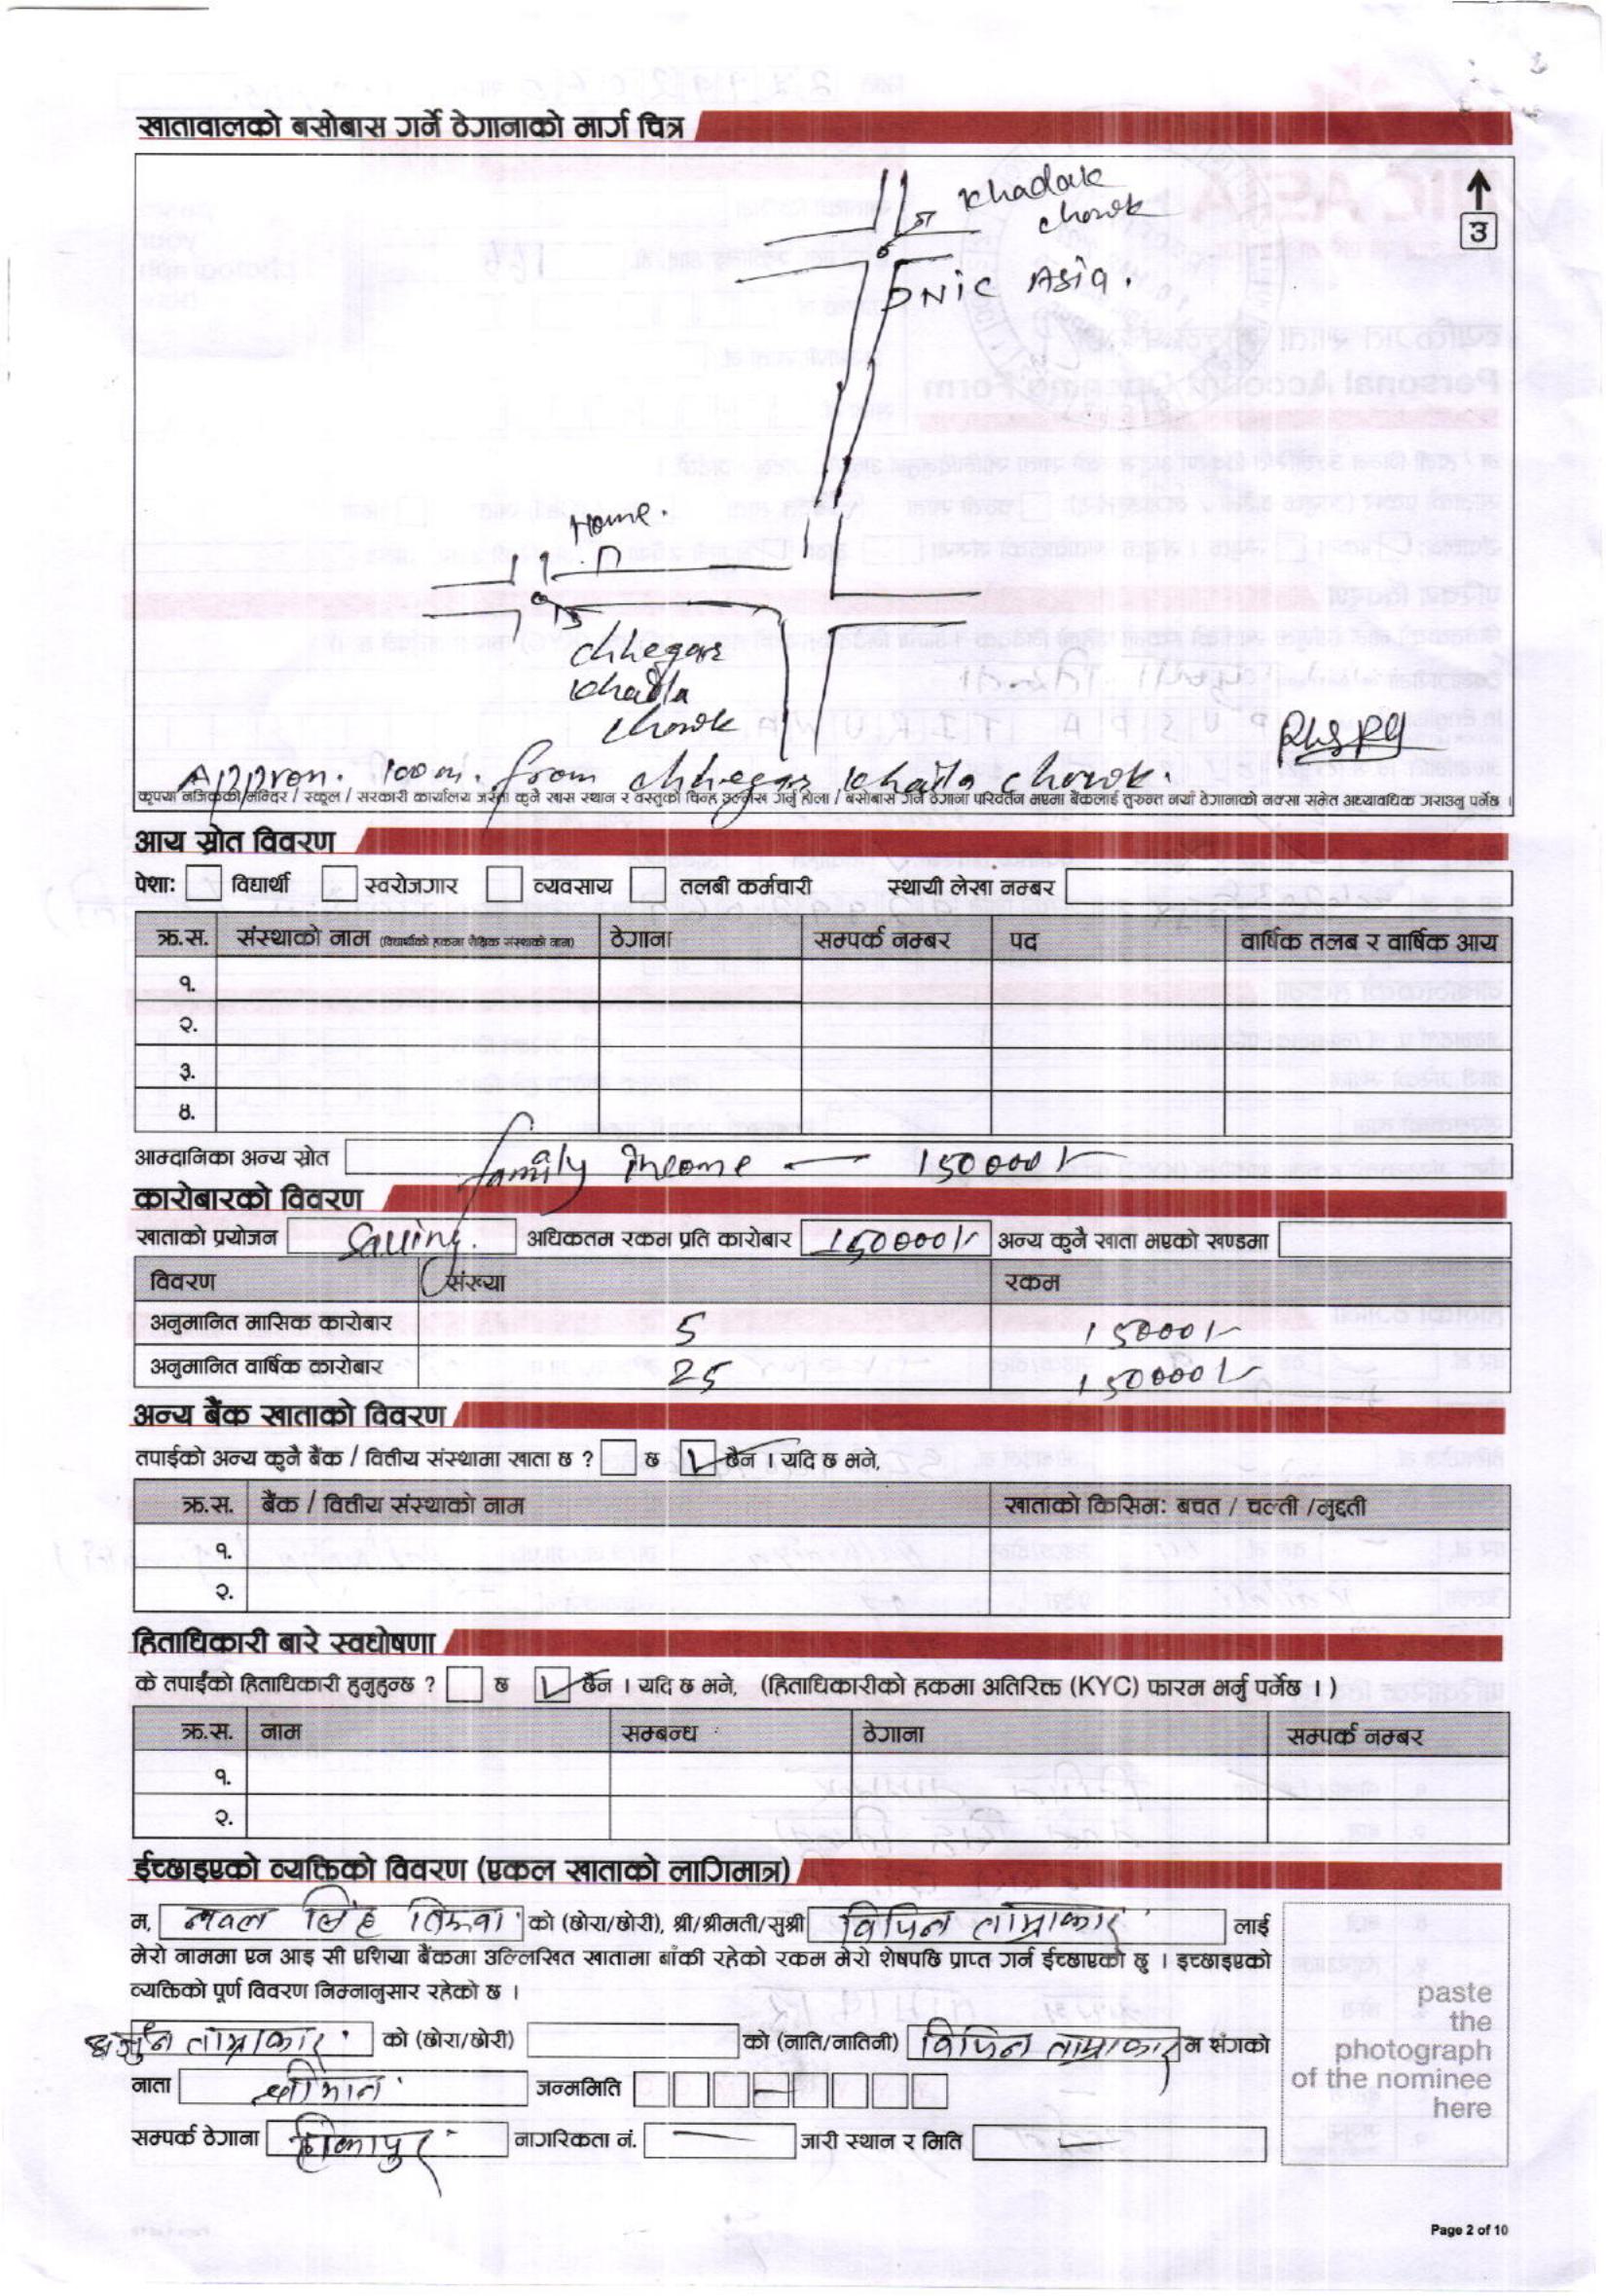 खातावालको बसोबास गर्ने ठेगानाको मार्ग चित्र
Khadak
chowk
NIC Asia.
उ
Home.
chhegar
khadla
chowk
Approx. 100 m. from chhegar khadla chowk.
कृपया नजिकको मन्दिर / स्कूल / सरकारी कार्यालय जस्ता कुनै खास स्थान र वस्तुको चिन्ह उल्लेख गर्नु होला / बसोबास गर्ने ठेगाना परिवर्तन भएमा बैंकलाई तुरुन्त नयाँ ठेगानाको नक्सा समेत अध्यावधिक गराउनु पर्नेछ ।
आय स्रोत विवरण
पेशाः विद्यार्थी स्वरोजगार व्यवसाय तलबी कर्मचारी स्थायी लेखा नम्बर
क्र.स. संस्थाको नाम (विद्यार्थीको हकमा शैक्षिक संस्थाको नाम) ठेगाना सम्पर्क नम्बर पद वार्षिक तलब र वार्षिक आय
१.
२.
३.
४.
आम्दानिका अन्य स्रोत family income — 150000/-
कारोबारको विवरण
खाताको प्रयोजन Saving. अधिकतम रकम प्रति कारोबार 150000/- अन्य कुनै खाता भएको खण्डमा
विवरण संख्या रकम
अनुमानित मासिक कारोबार 5 15000/-
अनुमानित वार्षिक कारोबार 25 150000/-
अन्य बैंक खाताको विवरण
तपाईको अन्य कुनै बैंक / वित्तीय संस्थामा खाता छ ? छ छैन । यदि छ भने,
क्र.स. बैंक / वित्तीय संस्थाको नाम खाताको किसिमः बचत / चल्ती /मुद्दती
१.
२.
हिताधिकारी बारे स्वघोषणा
के तपाईंको हिताधिकारी हुनुहुन्छ ? छ छैन । यदि छ भने, (हिताधिकारीको हकमा अतिरिक्त (KYC) फारम भर्नु पर्नेछ ।)
क्र.स. नाम सम्बन्ध ठेगाना सम्पर्क नम्बर
१.
२.
ईच्छाइएको व्यक्तिको विवरण (एकल खाताको लागिमात्र)
म, सिंह को (छोरा/छोरी), श्री/श्रीमती/सुश्री विपिन ताम्राकार लाई
मेरो नाममा एन आइ सी एशिया बैंकमा उल्लिखित खातामा बाँकी रहेको रकम मेरो शेषपछि प्राप्त गर्न ईच्छाएको छु । इच्छाइएको
व्यक्तिको पूर्ण विवरण निम्नानुसार रहेको छ ।
ताम्राकार को (छोरा/छोरी) को (नाति/नातिनी) विपिन ताम्राकार म संगको
नाता श्रीमान जन्ममिति
सम्पर्क ठेगाना टीकापुर नागरिकता नं. — जारी स्थान र मिति —
paste
the
photograph
of the nominee
here
Page 2 of 10